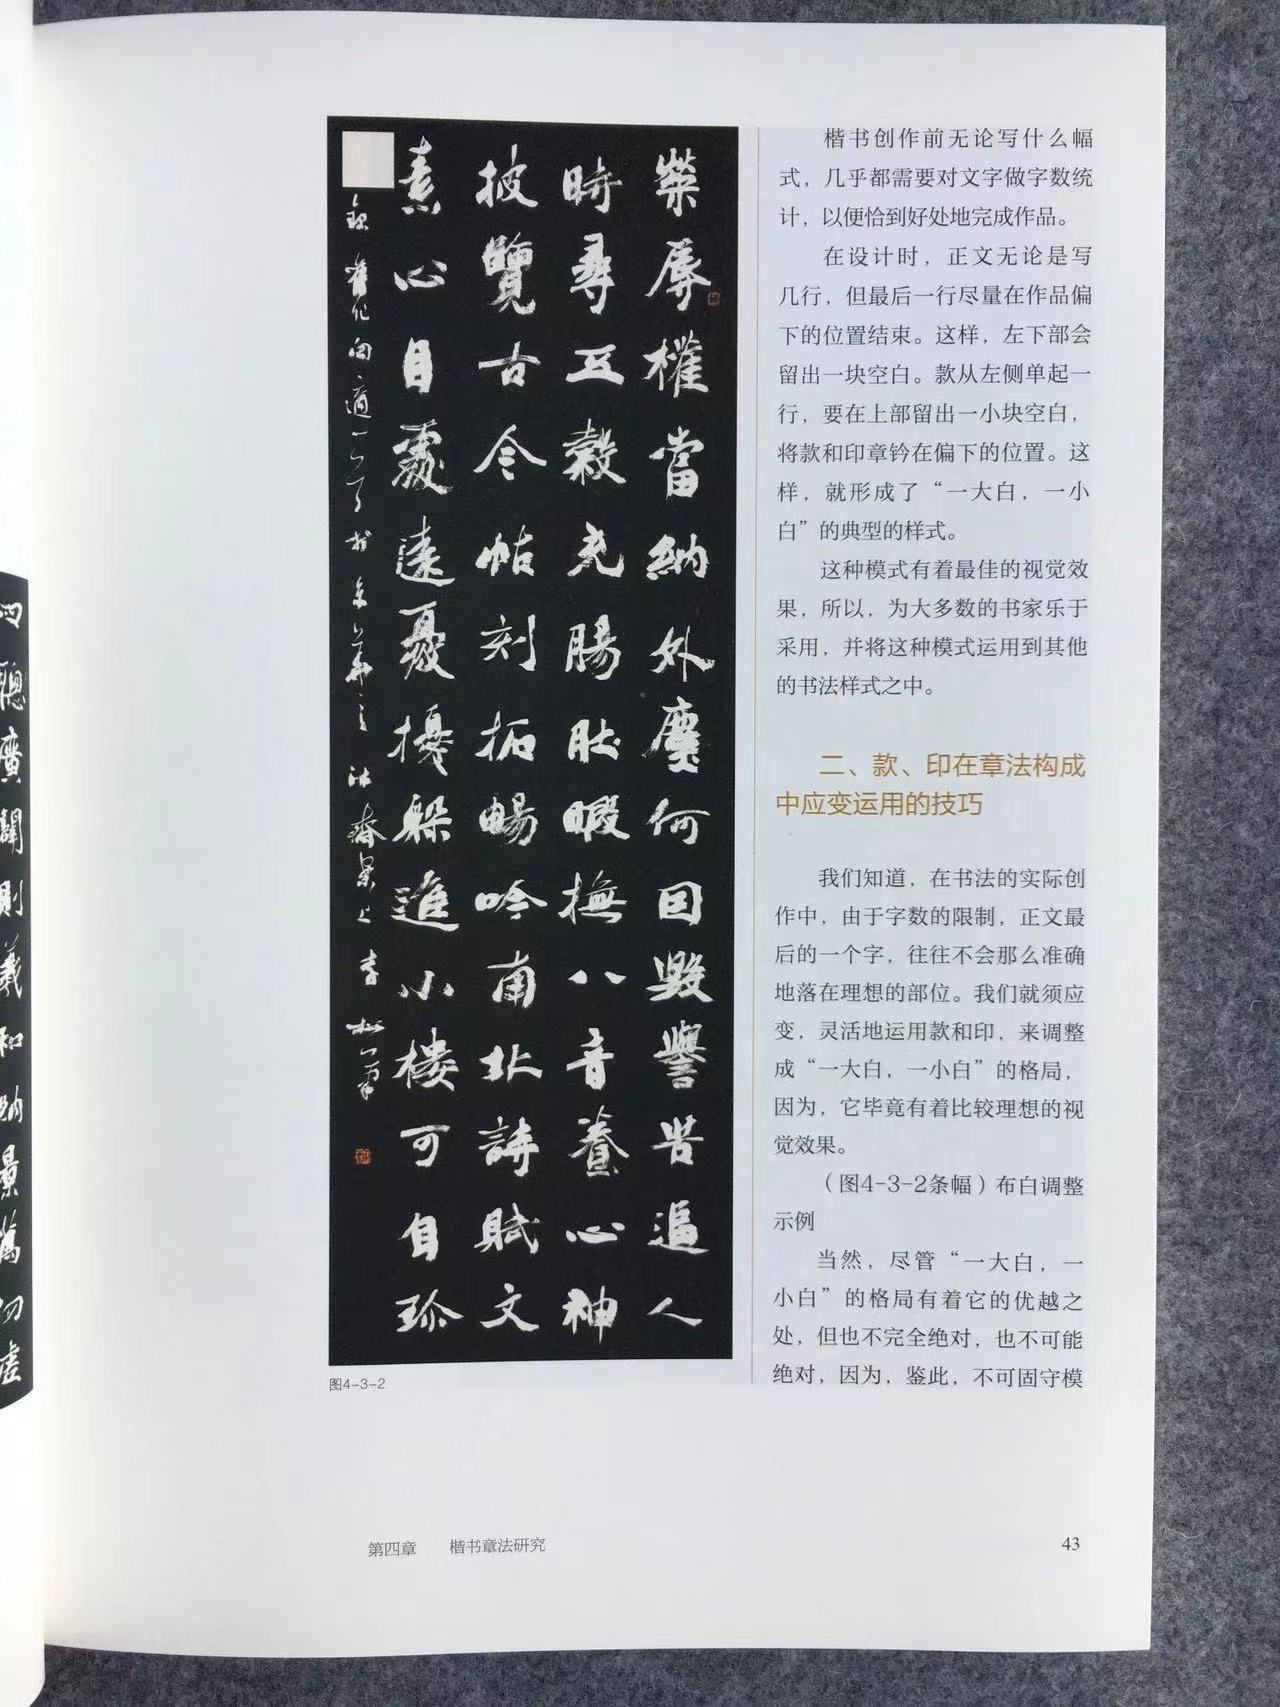 聰廣闢則羲和納景萬仞虛
榮辱權當納外塵何因毀譽苦逼人
時尋五穀充腸肚暇撫八音養心神
披覽古今帖刻拓暢吟南北詩賦文
素心自處遠憂擾躲進小樓可自珍
錄舊作閑適一首於京華之沐齋案上李松筆
图4-3-2
楷书创作前无论写什么幅
式，几乎都需要对文字做字数统
计，以便恰到好处地完成作品。
在设计时，正文无论是写
几行，但最后一行尽量在作品偏
下的位置结束。这样，左下部会
留出一块空白。款从左侧单起一
行，要在上部留出一小块空白，
将款和印章钤在偏下的位置。这
样，就形成了“一大白，一小
白”的典型的样式。
这种模式有着最佳的视觉效
果，所以，为大多数的书家乐于
采用，并将这种模式运用到其他
的书法样式之中。
二、款、印在章法构成
中应变运用的技巧
我们知道，在书法的实际创
作中，由于字数的限制，正文最
后的一个字，往往不会那么准确
地落在理想的部位。我们就须应
变，灵活地运用款和印，来调整
成“一大白，一小白”的格局，
因为，它毕竟有着比较理想的视
觉效果。
（图4-3-2条幅）布白调整
示例
当然，尽管“一大白，一
小白”的格局有着它的优越之
处，但也不完全绝对，也不可能
绝对，因为，鉴此，不可固守模
第四章 楷书章法研究
43